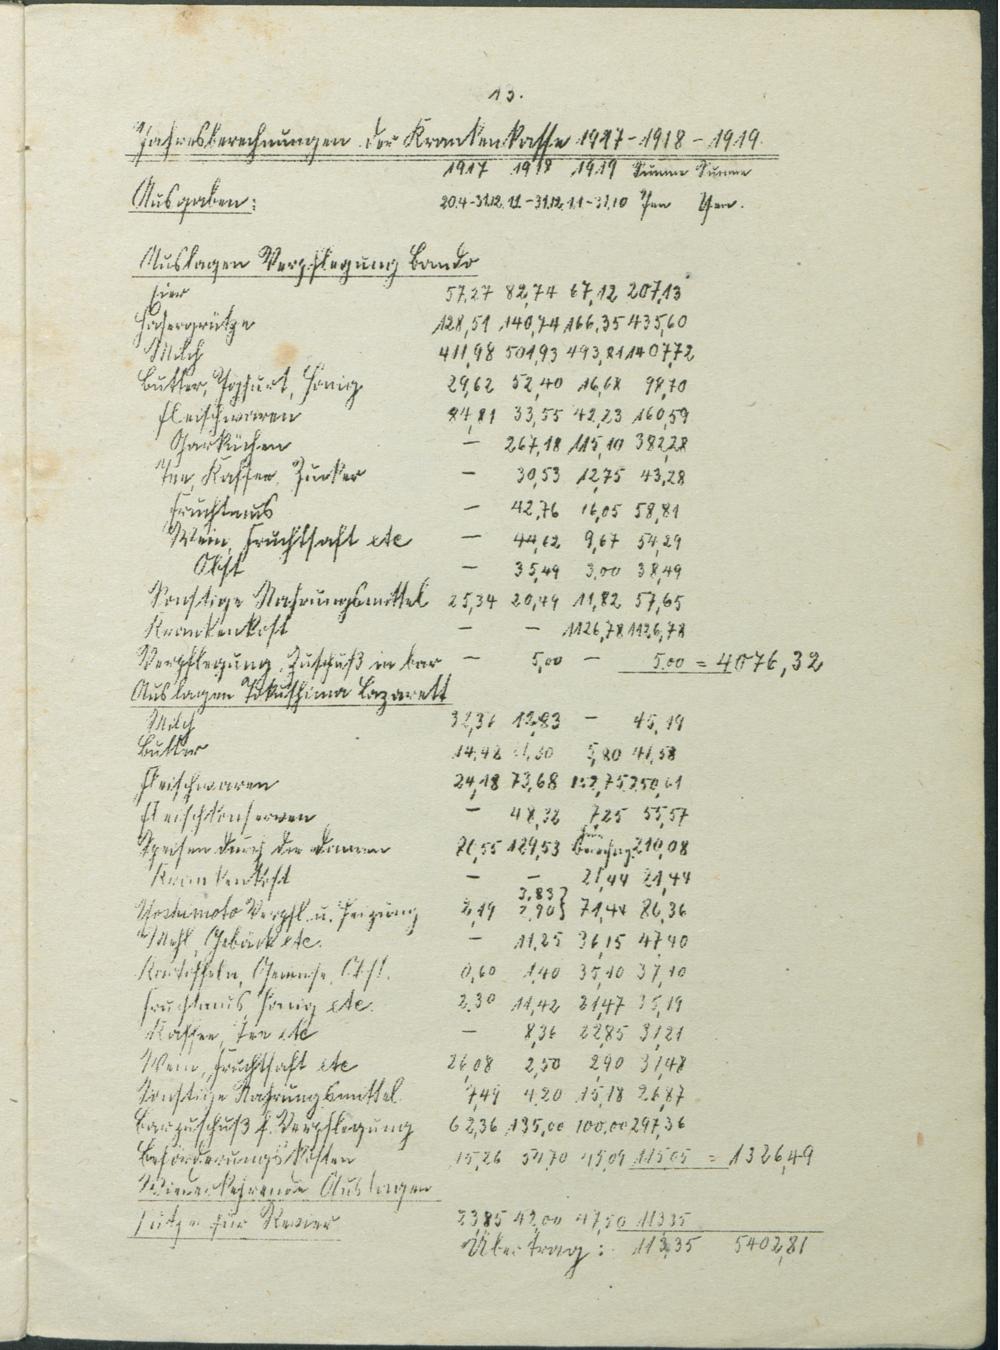 13.
Jahresberechnungen der Krankenkasse 1917-1918-1919.
1917 1918 1919 Summe Summe
Ausgaben: 20.4-31.12. 1.1-31.12. 1.1-31.10 Yen Yen.
Auslagen Verpflegung Bando
Eier 57,27 82,74 67,12 207,13
Hafergrütze 128,51 140,74 166,35 435,60
Milch 411,98 501,93 493,81 1407,72
Butter, Yoghurt, Honig 29,62 52,40 16,68 98,70
Fleischwaren 84,81 33,55 42,23 160,59
Garküchen - 267,18 115,10 382,28
Tee, Kaffee, Zucker - 30,53 12,75 43,28
Fruchtmus - 42,76 16,05 58,81
Wein, Fruchtsaft etc - 44,62 9,67 54,29
Obst - 35,49 3,00 38,49
Sonstige Nahrungsmittel 25,34 20,49 11,82 57,65
Krankenkost - - 1126,78 1126,78
Verpflegung, Zuschuß in bar - 5,00 - 5,00 = 4076,32
Auslagen Tokushima Lazarett
Milch 32,36 12,83 - 45,19
Butter 14,48 5,80 41,58
Fleischwaren 24,18 73,68 152,75 250,61
Fleischkonserven - 48,32 7,25 55,57
Speisen durch die 129,53 210,08
Krankenkost - - 21,44 21,44
3,83}
Yoshimoto Verpfl. u. Heizung 2,19 2,90} 71,44 80,36
Mehl, Gebäck etc. - 11,25 36,15 47,40
Kartoffeln, Gemüse, Obst. 0,60 1,40 35,10 37,10
Fruchtmus, Honig etc. 2,30 11,42 21,47 35,19
Kaffee, Tee etc - 8,36 22,85 31,21
Wein, Fruchtsaft etc 26,08 2,50 2,90 31,48
Sonstige Nahrungsmittel 7,49 4,20 15,18 26,87
Barzuschuß f. Verpflegung 62,36 135,00 100,00 297,36
Beförderungskosten 15,26 54,70 45,09 115,05 = 1326,49
Wiederkehrende Auslagen
für Revier 23,85 42,00 47,50 113,35
Übertrag: 113,35 5402,81